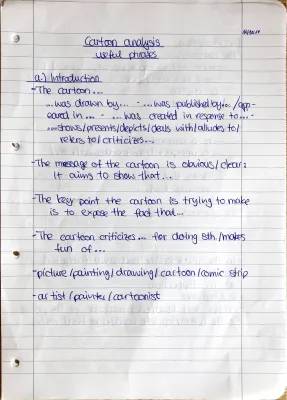 Cartoon analysis
useful phrases
a) Introduction
- The cartoon...
...was drawn by... - ...was published by... /app-
eared in... - ...was created in response to... -
...shows/presents/depicts/deals with/alludes to/
refers to/criticizes...
- The message of the cartoon is obvious/clear:
It aims to show that...
- The key point the cartoon is trying to make
is to expose the fact that...
- The cartoon criticizes... for doing sth./makes
fun of...
- picture/painting/drawing/cartoon/comic strip
- artist/painter/cartoonist